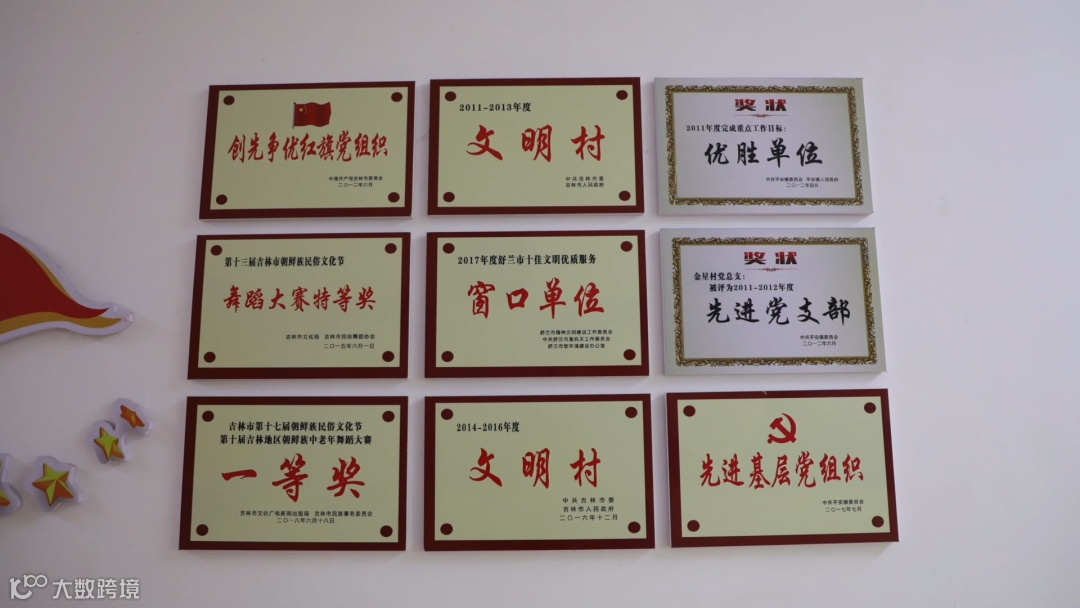 创先争优红旗党组织
中国共产党吉林市委员会
二〇一二年六月
2011-2013年度
文明村
中共吉林市委
吉林市人民政府
奖状
2011年度完成重点工作目标:
优胜单位
中共平安镇委员会 平安镇人民政府
二〇一二年四月
第十三届吉林市朝鲜族民俗文化节
舞蹈大赛特等奖
吉林市文化局 吉林市民族舞蹈协会
二〇一五年六月一日
2017年度舒兰市十佳文明优质服务
窗口单位
舒兰市精神文明建设工作委员会
中共舒兰市直机关工作委员会
舒兰市软环境建设办公室
奖状
金星村党总支:
被评为2011-2012年度
先进党支部
中共平安镇委员会
二〇一二年六月
吉林市第十七届朝鲜族民俗文化节
第十届吉林地区朝鲜族中老年舞蹈大赛
一等奖
吉林市文化广电新闻出版局 吉林市民族事务委员会
二〇一八年六月十八日
2014-2016年度
文明村
中共吉林市委
吉林市人民政府
二〇一六年十二月
先进基层党组织
中共平安镇委员会
二〇一七年七月
大数跨境